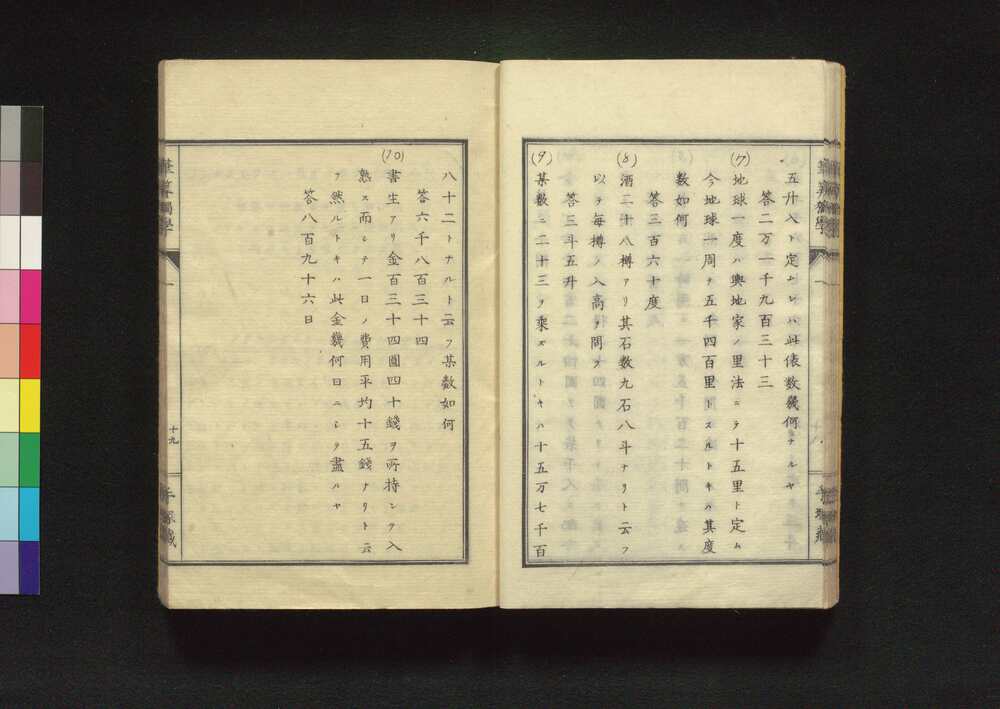 五升入ト定ムレハ此俵数幾何ナルヤ
答二万一千九百三十三
(7)地球一度ハ輿地家ノ里法ニテ十五里ト定ム
今地球一周ヲ五千四百里トスルトキハ其度
数如何
答三百六十度
(8)酒二十八樽アリ其石数九石八斗ナリト云フ
以テ毎樽ノ入高ヲ問フ
答三斗五升
(9)某数ニ二十三ヲ乗スルトキハ十五万七千百
八十二トナルト云フ某数如何
答六千八百三十四
(10)書生アリ金百三十四圓四十錢ヲ所持シテ入
熟ス而シテ一日ノ費用平均十五錢ナリト云
フ然ルトキハ此金幾何日ニシテ盡ルヤ
答八百九十六日
十九